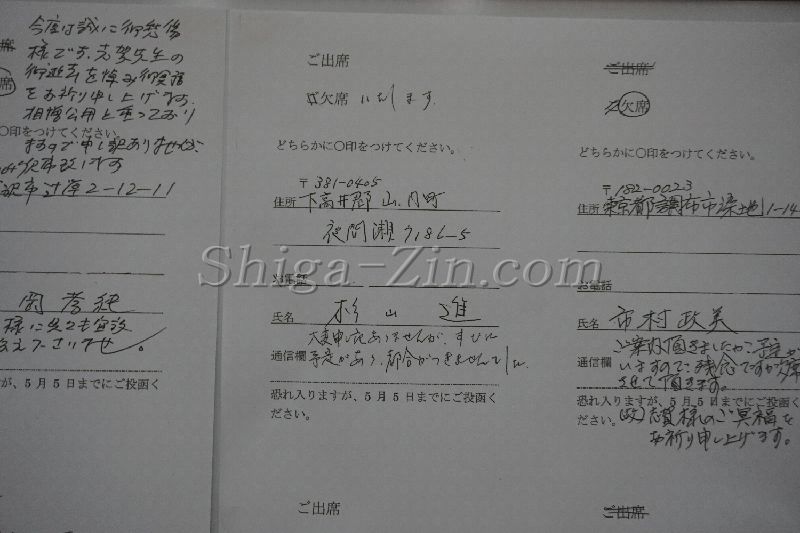 今度は誠に御愁傷
様です。志賀先生の
御逝去を悼み御冥福
をお祈り申し上げます。
席
相憎公用と重っており
〇印をつけてください。
ますので申し訳ありませんが、
2-12-11
様に
が、5月5日までにご投函く
ご出席
ご欠席 いたします。
どちらかに〇印をつけてください。
〒381-0405
住所 下高井郡山ノ内町
夜間瀬
お電話
氏名 杉山 進
大変申し訳ありませんが、すでに
通信欄 予定があり、都合がつきませんでした
恐れ入りますが、5月5日までにご投函く
ださい。
ご出席
ご出席
ご欠席
どちらかに〇印をつけてください。
〒182-0023
住所 東京都調布市染地1-14
お電話
氏名 市村政美
ご案内頂きましたがご予定が
通信欄 いますので残念ですが欠席
させて頂きます。
恐れ入りますが、5月5日までにご投函く
ださい。 (故)志賀様のご冥福を
お祈り申し上げます。
ご出席
Shiga-Zin.com